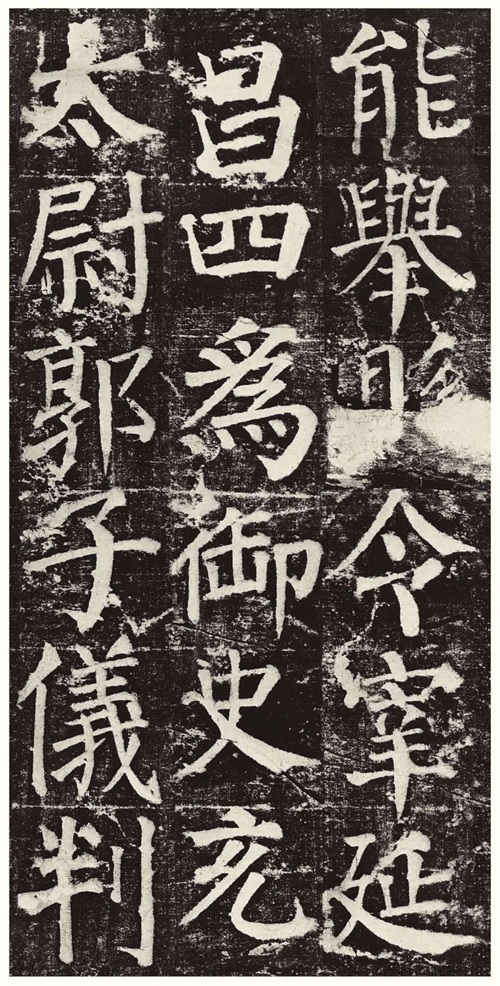 能舉縣令宰延
昌四爲御史充
太尉郭子儀判